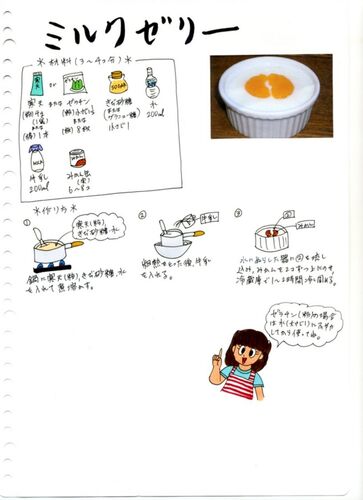 ミルクゼリー
※材料(3〜4コ分)※
寒天 or ゼラチン
きな砂糖
水
200ml
(粉)
または
(粉)
または
または
8枚
大さじ1
(棒)1本
牛乳
200ml
みかん缶
6〜8コ
※作り方※
①
寒天(粉)、
きな砂糖、水
鍋に寒天(粉)、きな砂糖、水
を入れて煮溶かす。
②
牛乳
粗熱をとった後、牛乳
を入れる。
③
②
みかん
水にぬらした器に②を流し
込み、みかんを2コずつ上にのせ、
冷蔵庫で1〜2時間冷し固める。
ゼラチン(粉)の場合
は水(大さじ2)にふやか
してから使ってね。